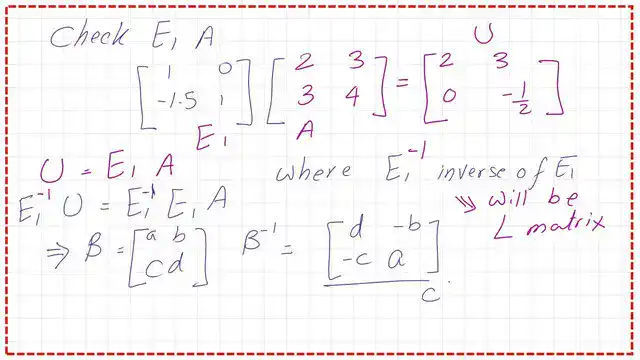 Check E₁ A
[1 0; -1.5 1] [2 3; 3 4] = [2 3; 0 -1/2] U
E₁ A
U = E₁ A where E₁⁻¹ inverse of E₁
E₁⁻¹ U = E₁⁻¹ E₁ A ⇒ will be
L matrix
⇒ B = [a b; c d] B⁻¹ = [d -b; -c a]
c